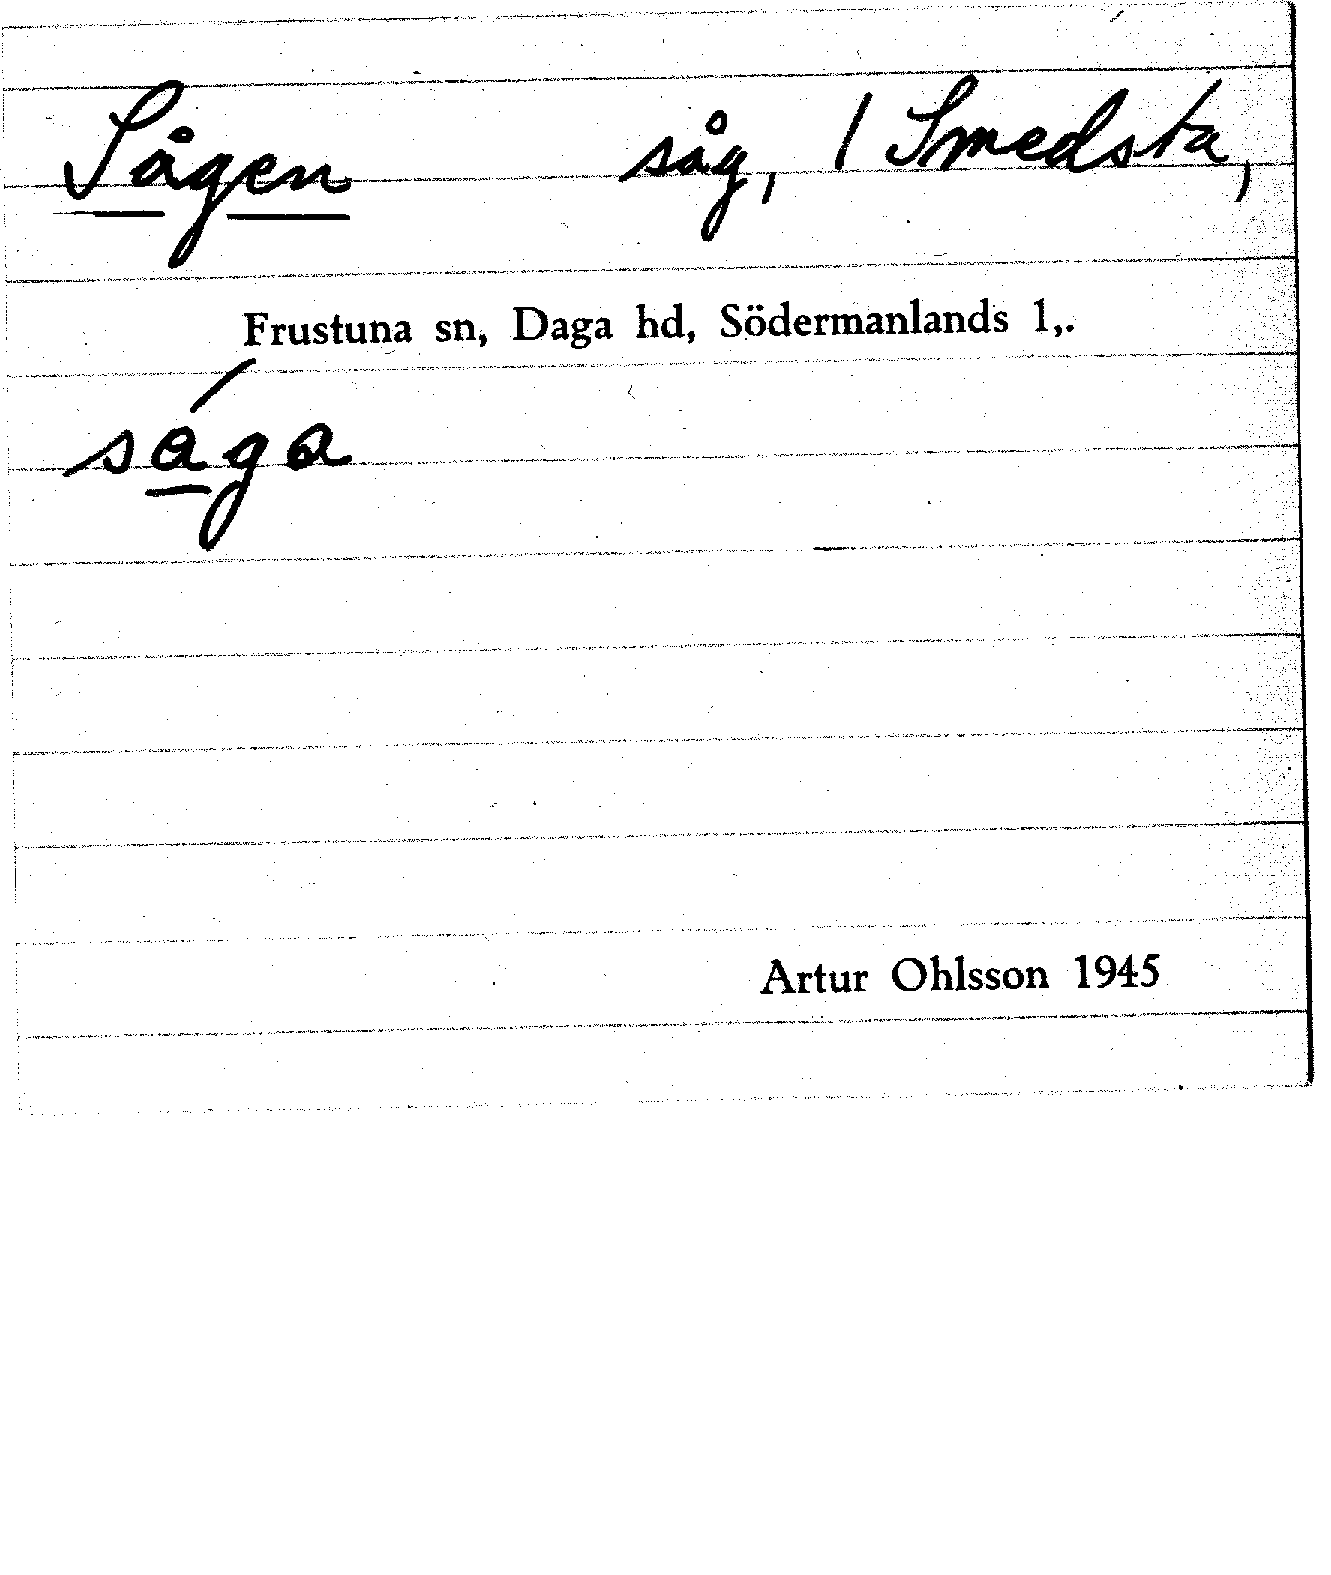 Sågen såg, / Smedsta,
Frustuna sn, Daga hd, Södermanlands l,.
sága
Artur Ohlsson 1945